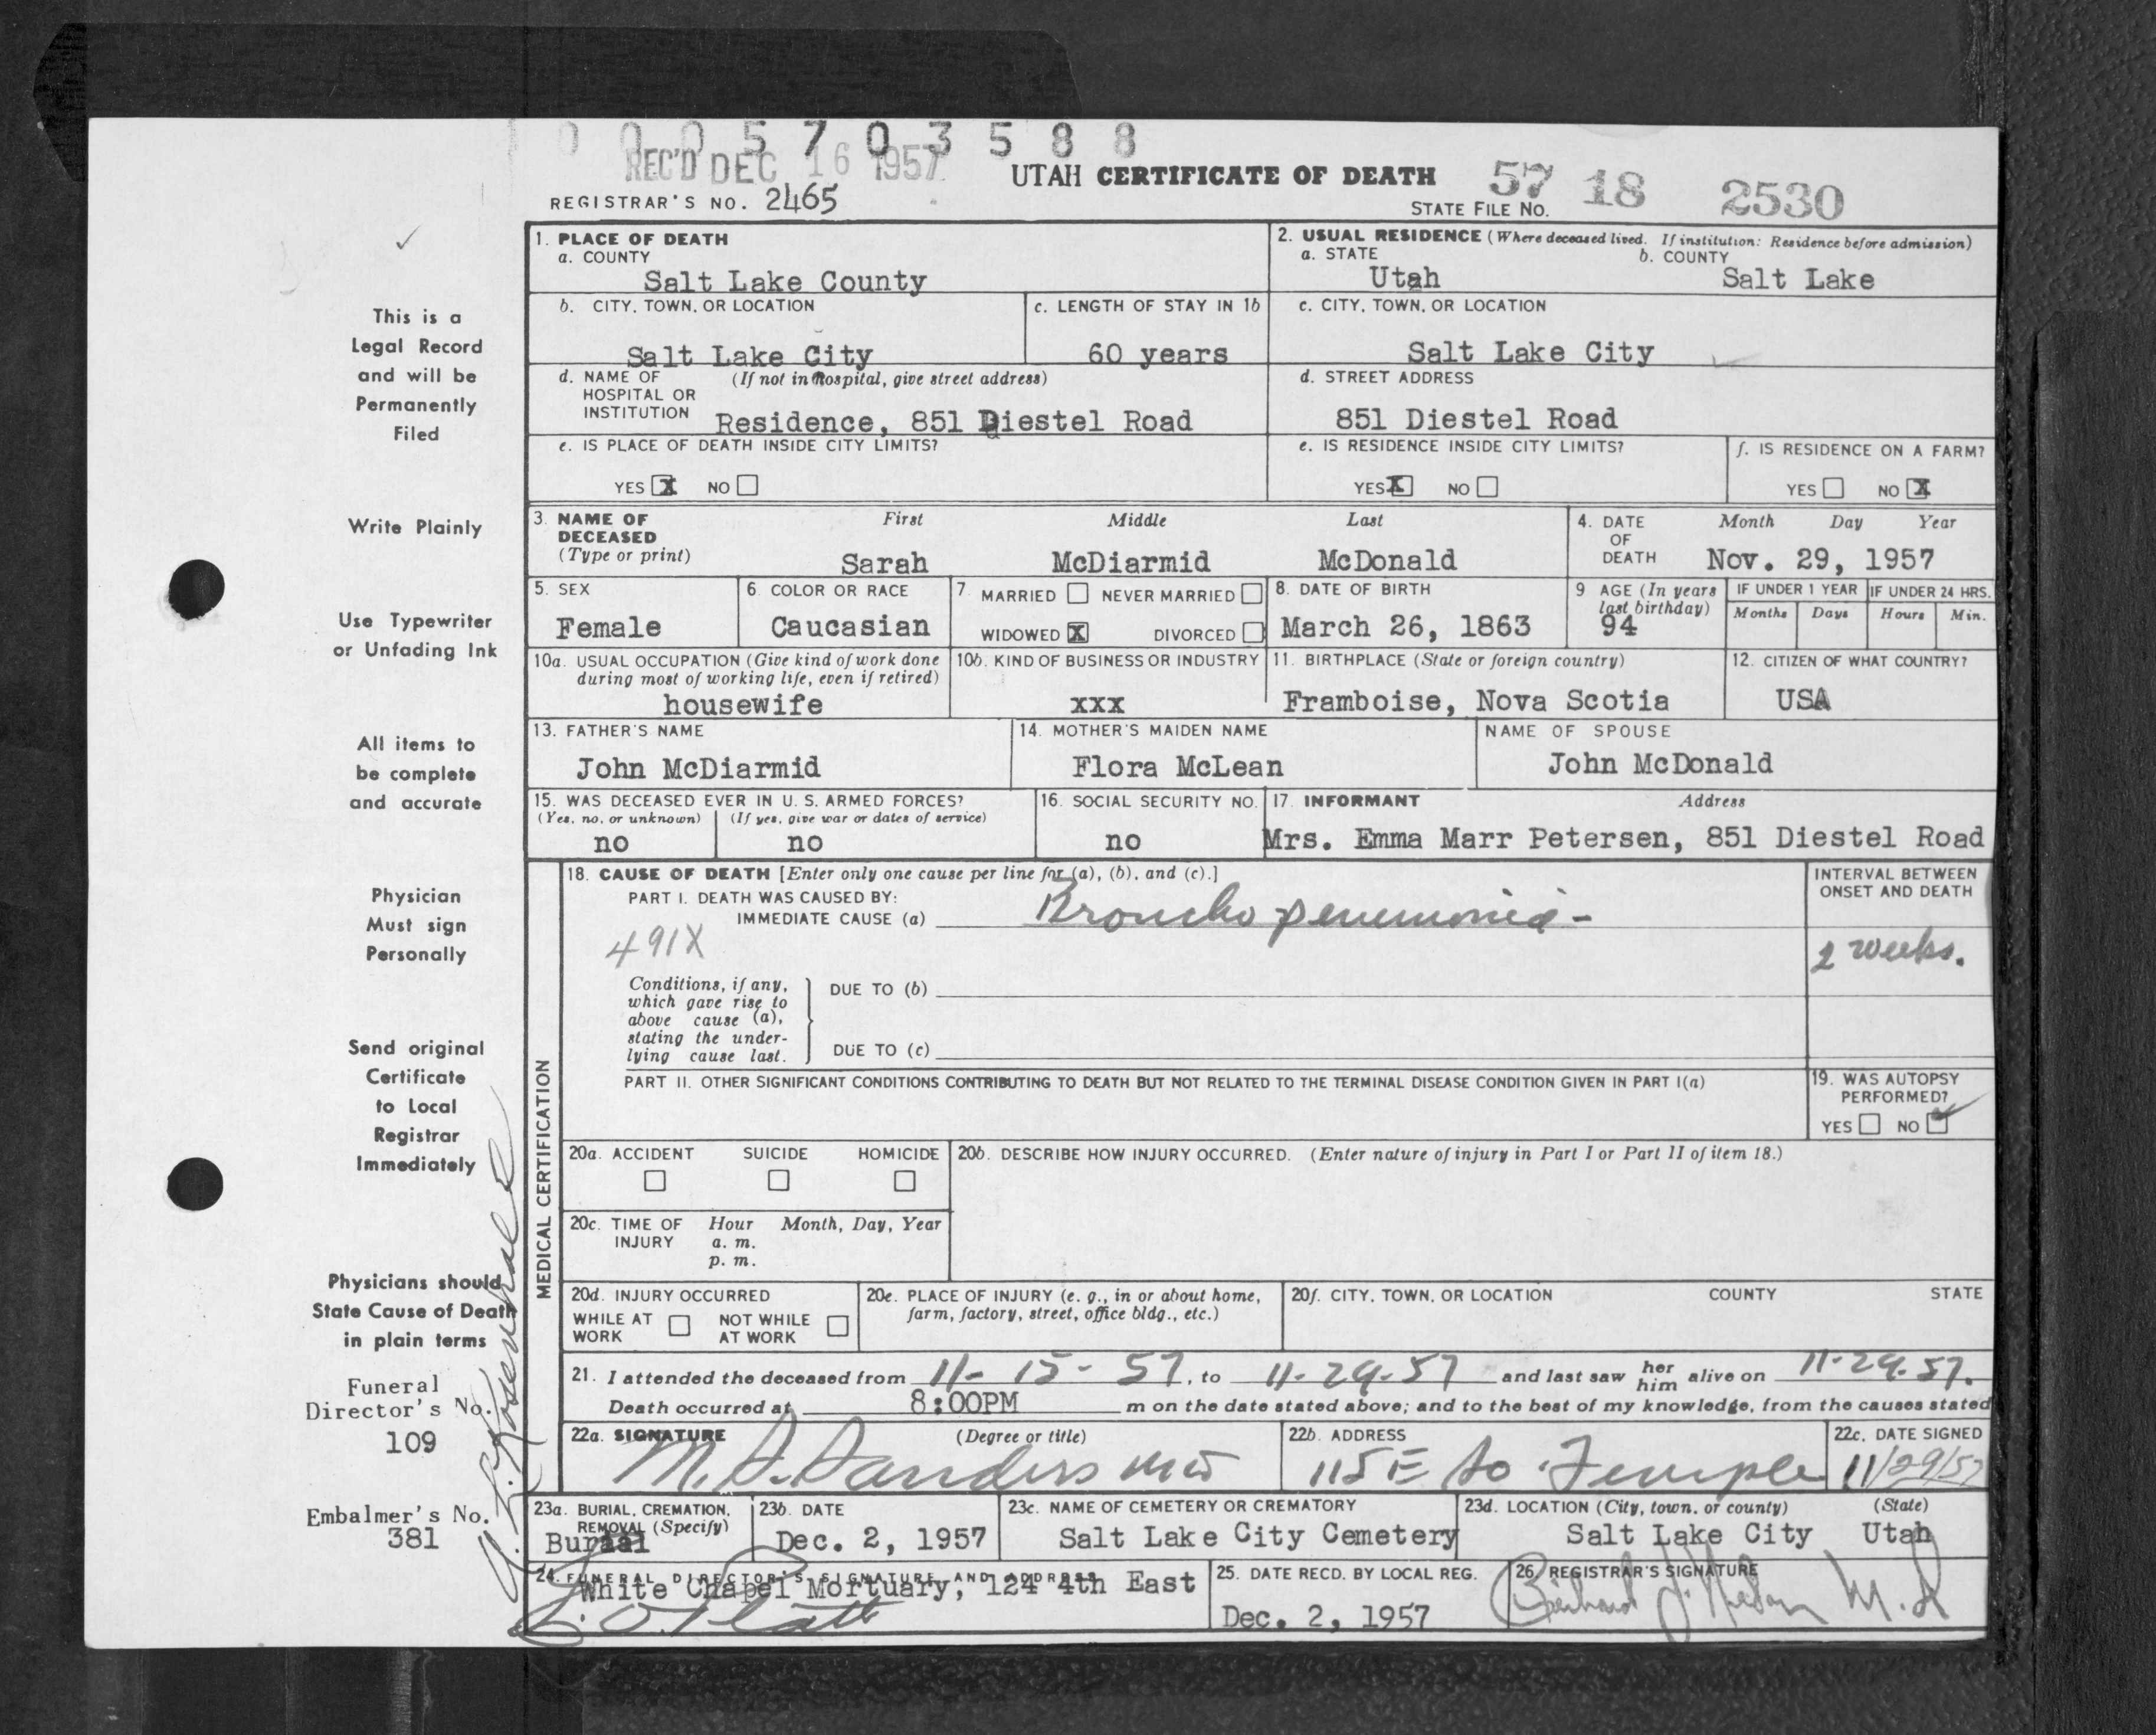 0 0 0 5 7 0 3 5 8 8
REC'D DEC 16 1957
UTAH CERTIFICATE OF DEATH
REGISTRAR'S NO. 2465
STATE FILE NO. 57 18 2530
1. PLACE OF DEATH
a. COUNTY
Salt Lake County
2. USUAL RESIDENCE (Where deceased lived. If institution: Residence before admission)
a. STATE b. COUNTY
Utah Salt Lake
b. CITY, TOWN, OR LOCATION
Salt Lake City
c. LENGTH OF STAY IN 1b
60 years
c. CITY, TOWN, OR LOCATION
Salt Lake City
d. NAME OF (If not in hospital, give street address)
HOSPITAL OR
INSTITUTION Residence, 851 Diestel Road
d. STREET ADDRESS
851 Diestel Road
e. IS PLACE OF DEATH INSIDE CITY LIMITS?
YES X NO
e. IS RESIDENCE INSIDE CITY LIMITS?
YES X NO
f. IS RESIDENCE ON A FARM?
YES NO X
3. NAME OF First Middle Last
DECEASED
(Type or print) Sarah McDiarmid McDonald
4. DATE Month Day Year
OF
DEATH Nov. 29, 1957
5. SEX
Female
6. COLOR OR RACE
Caucasian
7. MARRIED NEVER MARRIED
WIDOWED X DIVORCED
8. DATE OF BIRTH
March 26, 1863
9 AGE (In years
last birthday)
94
IF UNDER 1 YEAR IF UNDER 24 HRS.
Months Days Hours Min.
10a. USUAL OCCUPATION (Give kind of work done
during most of working life, even if retired)
housewife
10b. KIND OF BUSINESS OR INDUSTRY
xxx
11. BIRTHPLACE (State or foreign country)
Framboise, Nova Scotia
12. CITIZEN OF WHAT COUNTRY?
USA
13. FATHER'S NAME
John McDiarmid
14. MOTHER'S MAIDEN NAME
Flora McLean
NAME OF SPOUSE
John McDonald
15. WAS DECEASED EVER IN U. S. ARMED FORCES?
(Yes, no, or unknown) (If yes, give war or dates of service)
no no
16. SOCIAL SECURITY NO.
no
17. INFORMANT Address
Mrs. Emma Marr Petersen, 851 Diestel Road
MEDICAL CERTIFICATION
18. CAUSE OF DEATH [Enter only one cause per line for (a), (b), and (c).]
PART I. DEATH WAS CAUSED BY:
IMMEDIATE CAUSE (a) Broncho penumonia -
491X
INTERVAL BETWEEN
ONSET AND DEATH
2 weeks.
Conditions, if any,
which gave rise to
above cause (a),
stating the under-
lying cause last.
DUE TO (b)
DUE TO (c)
PART II. OTHER SIGNIFICANT CONDITIONS CONTRIBUTING TO DEATH BUT NOT RELATED TO THE TERMINAL DISEASE CONDITION GIVEN IN PART I(a)
19. WAS AUTOPSY
PERFORMED?
YES NO ✓
20a. ACCIDENT SUICIDE HOMICIDE
20b. DESCRIBE HOW INJURY OCCURRED. (Enter nature of injury in Part I or Part II of item 18.)
20c. TIME OF Hour Month, Day, Year
INJURY a. m.
p. m.
20d. INJURY OCCURRED
WHILE AT NOT WHILE
WORK AT WORK
20e. PLACE OF INJURY (e. g., in or about home,
farm, factory, street, office bldg., etc.)
20f. CITY, TOWN, OR LOCATION COUNTY STATE
21. I attended the deceased from 11-15-57, to 11-29-57 and last saw her him alive on 11-29-57.
Death occurred at 8:00PM m on the date stated above; and to the best of my knowledge, from the causes stated
22a. SIGNATURE (Degree or title)
M. Sanders MD
22b. ADDRESS
115 E So. Temple
22c. DATE SIGNED
11/29/57
23a. BURIAL, CREMATION,
REMOVAL (Specify)
Burial
23b. DATE
Dec. 2, 1957
23c. NAME OF CEMETERY OR CREMATORY
Salt Lake City Cemetery
23d. LOCATION (City, town, or county) (State)
Salt Lake City Utah
24. FUNERAL DIRECTOR'S SIGNATURE AND ADDRESS
White Chapel Mortuary, 124 4th East
Platt
25. DATE RECD. BY LOCAL REG.
Dec. 2, 1957
26. REGISTRAR'S SIGNATURE
M.D
This is a
Legal Record
and will be
Permanently
Filed
Write Plainly
Use Typewriter
or Unfading Ink
All items to
be complete
and accurate
Physician
Must sign
Personally
Send original
Certificate
to Local
Registrar
Immediately
Physicians should
State Cause of Death
in plain terms
Funeral
Director's No.
109
Embalmer's No.
381